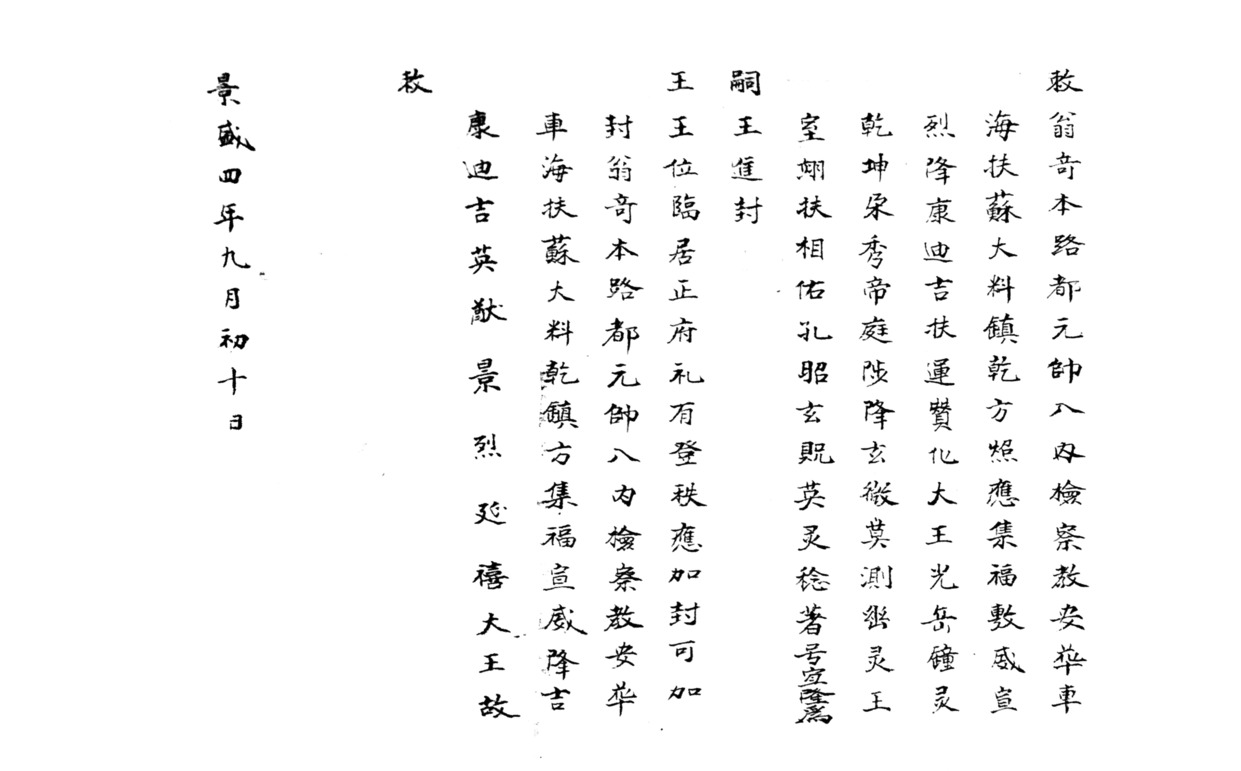 敕翁竒本路都元帥入內檢察教安華車
海扶蘇大料鎮乾方照應集福敷威宣
烈降康迪吉扶運贊化大王光岳鐘灵
乾坤朶秀帝庭陟降玄微莫測幽灵王
室翊扶相佑孔昭玄貺英灵稔著号宜隆為
嗣王進封
王王位臨居正府礼有登秩應加封可加
封翁竒本路都元帥入内檢察教安華
車海扶蘇大料乾鎮方集福宣威降吉
康迪吉英猷景烈延禧大王故
敕
景盛四年九月初十日